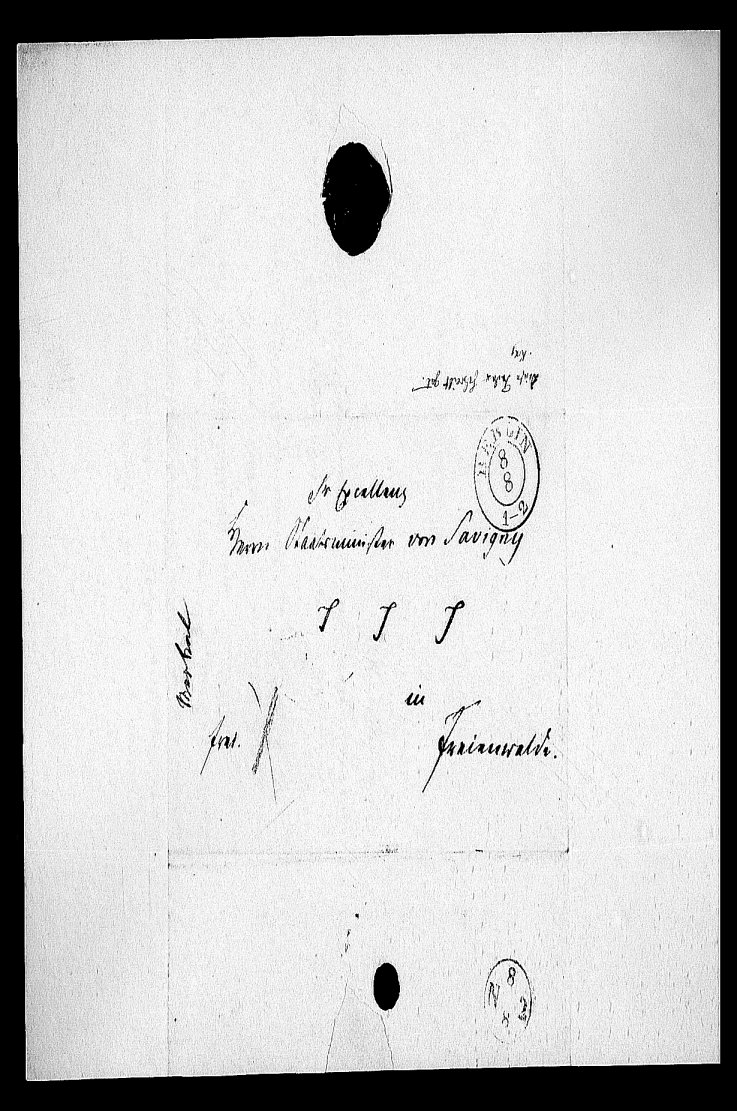 BERLIN
8
8
1-2
Sr Excellenz
Herrn Staatsminister von Savigny
in
frei.
Freienwalde.
N 8
8 2